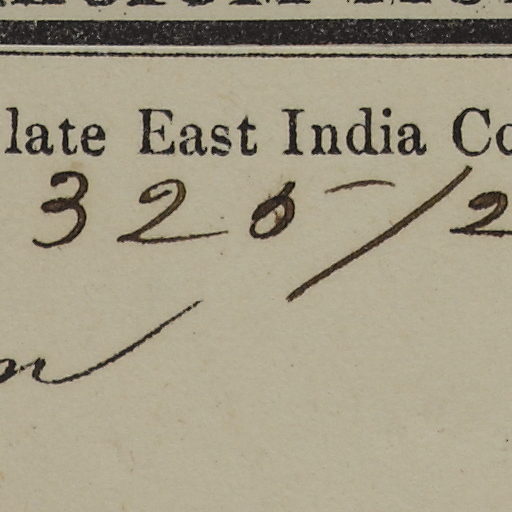 late East India Co
325/2